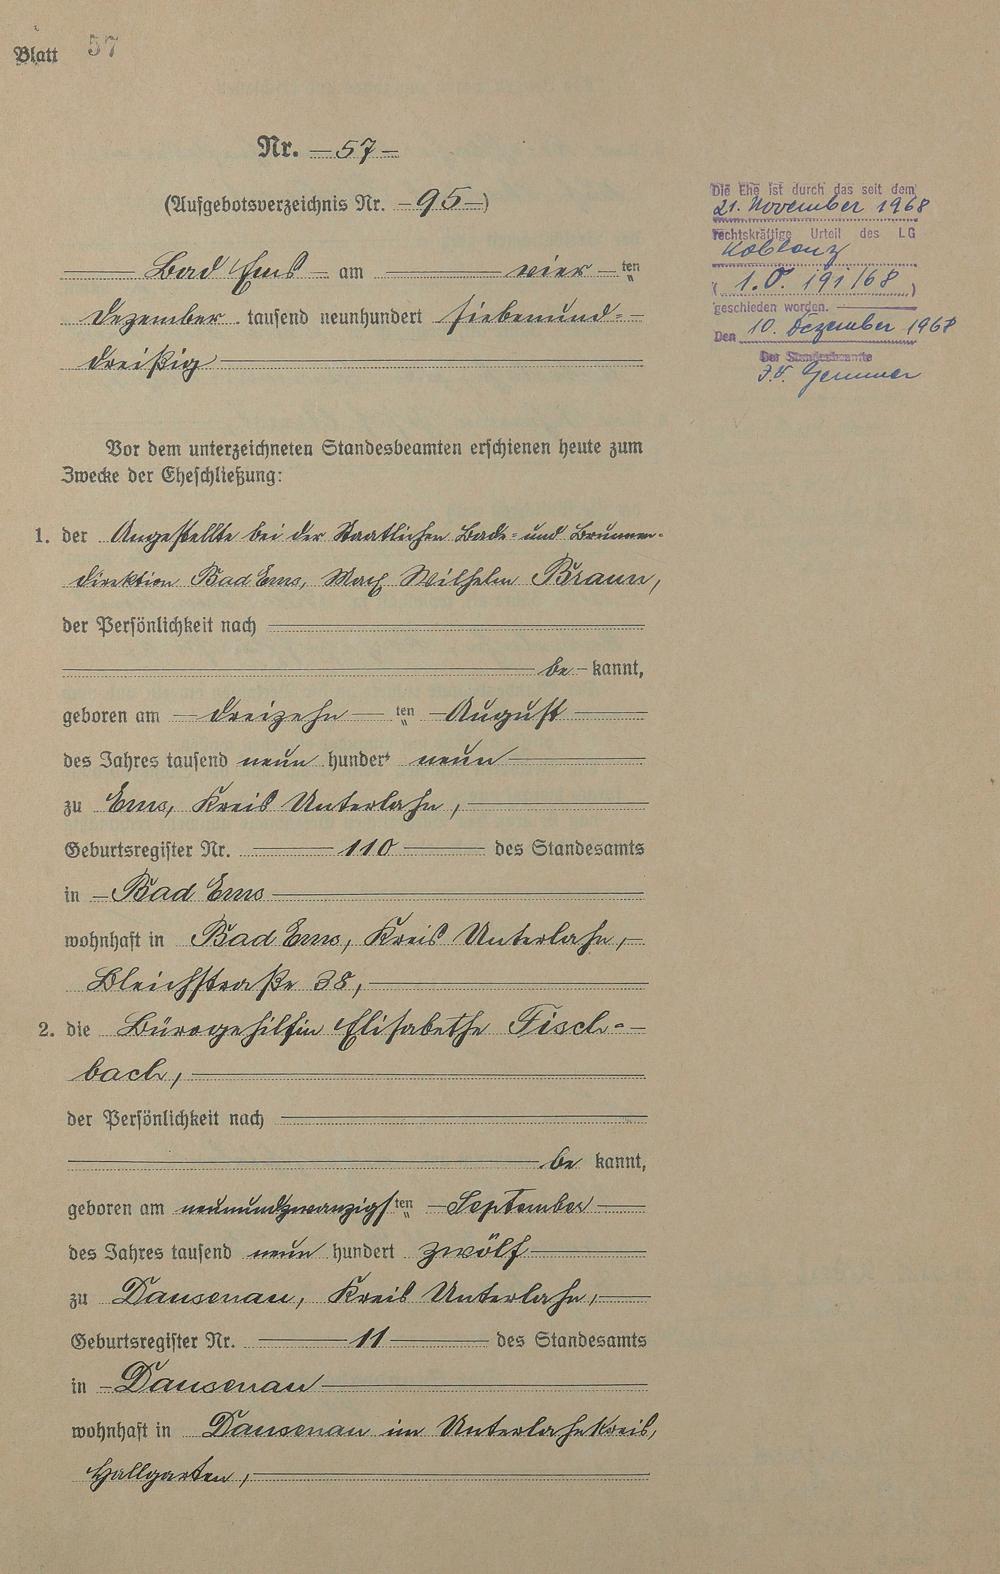 Blatt 57
Nr. 57
(Aufgebotsverzeichnis Nr. 95)
Bad Ems am vier ten
Dezember tausend neunhundert siebenund-
dreißig
Vor dem unterzeichneten Standesbeamten erschienen heute zum
Zwecke der Eheschließung:
1. der Angestellte bei der Staatlichen Bade- und Brunnen-
direktion Bad Ems, Wilhelm Braun,
der Persönlichkeit nach
be kannt,
geboren am dreizehn ten August
des Jahres tausend neun hundert neun
zu Ems, Kreis Unterlahn,
Geburtsregister Nr. 110 des Standesamts
in Bad Ems
wohnhaft in Bad Ems, Kreis Unterlahn,
Bleichstraße 38,
2. die Bürogehilfin Elisabethe Fisch-
bach,
der Persönlichkeit nach
be kannt,
geboren am neunundzwanzigs ten September
des Jahres tausend neun hundert zwölf
zu Dausenau, Kreis Unterlahn,
Geburtsregister Nr. 11 des Standesamts
in Dausenau
wohnhaft in Dausenau im Unterlahnkreis,
Hallgarten,
Die Ehe ist durch das seit dem
21. November 1968
rechtskräftige Urteil des LG
Koblenz
( 1. O. 191/68 )
geschieden worden.
Den 10. Dezember 1968
Der Standesbeamte